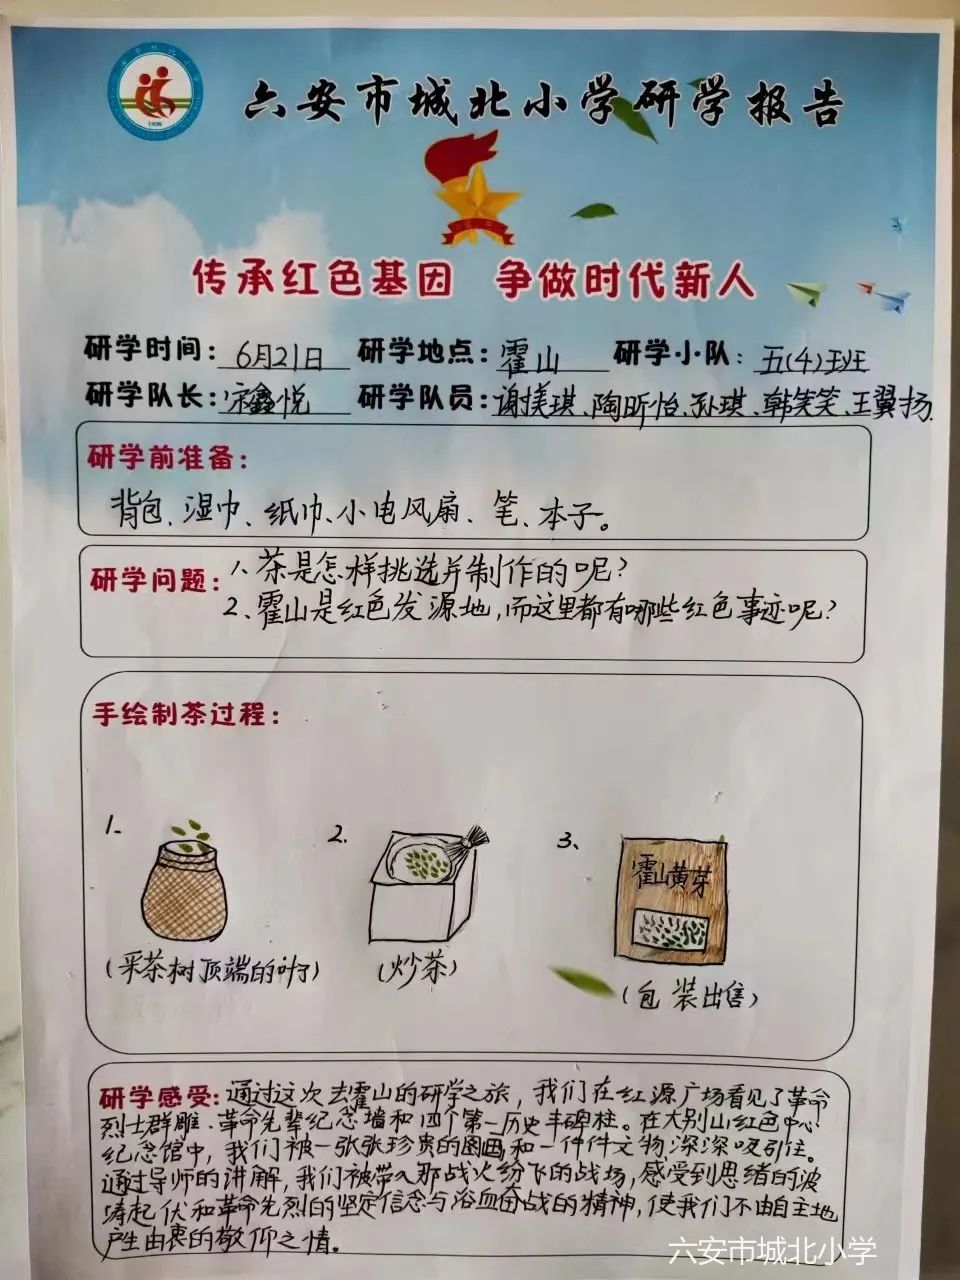 六安市城北小学研学报告
1906
传承红色基因 争做时代新人
研学时间：6月21日 研学地点：霍山 研学小队：五(4)班
研学队长：宋鑫悦 研学队员：谢美琪、陶昕怡、孙琪、韩笑笑、王翼扬.
研学前准备：
背包、湿巾、纸巾、小电风扇、笔、本子。
研学问题：1、茶是怎样挑选并制作的呢？
2、霍山是红色发源地，而这里都有哪些红色事迹呢？
手绘制茶过程：
1. 2. 3、
霍山黄芽
(采茶树顶端的叶子) (炒茶)
(包装出售)
研学感受：通过这次去霍山的研学之旅，我们在红源广场看见了革命
烈士群雕、革命先辈纪念墙和四个第一历史丰碑柱。在大别山红色中心
纪念馆中，我们被一张张珍贵的图画和一件件文物深深吸引住。
通过导师的讲解，我们被带入那战火纷飞的战场，感受到思绪的波
涛起伏和革命先烈的坚定信念与浴血奋战的精神，使我们不由自主地
产生由衷的敬仰之情。
六安市城北小学